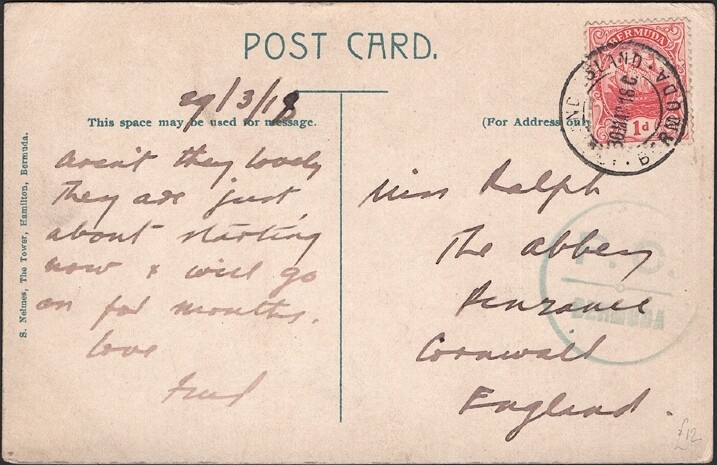 POST CARD.
29/3/18
This space may be used for message.
Aren't they lovely
They are just
about starting
now & will go
on for months.
love
(For Address only
Miss Ralph
The abbey
Penzance
Cornwall
England.
BERMUDA
1d
ISLAND · BERMUDA
30 MAR 18
P. C.
BERMUDA
S. Nelmes, The Tower, Hamilton, Bermuda.
£12